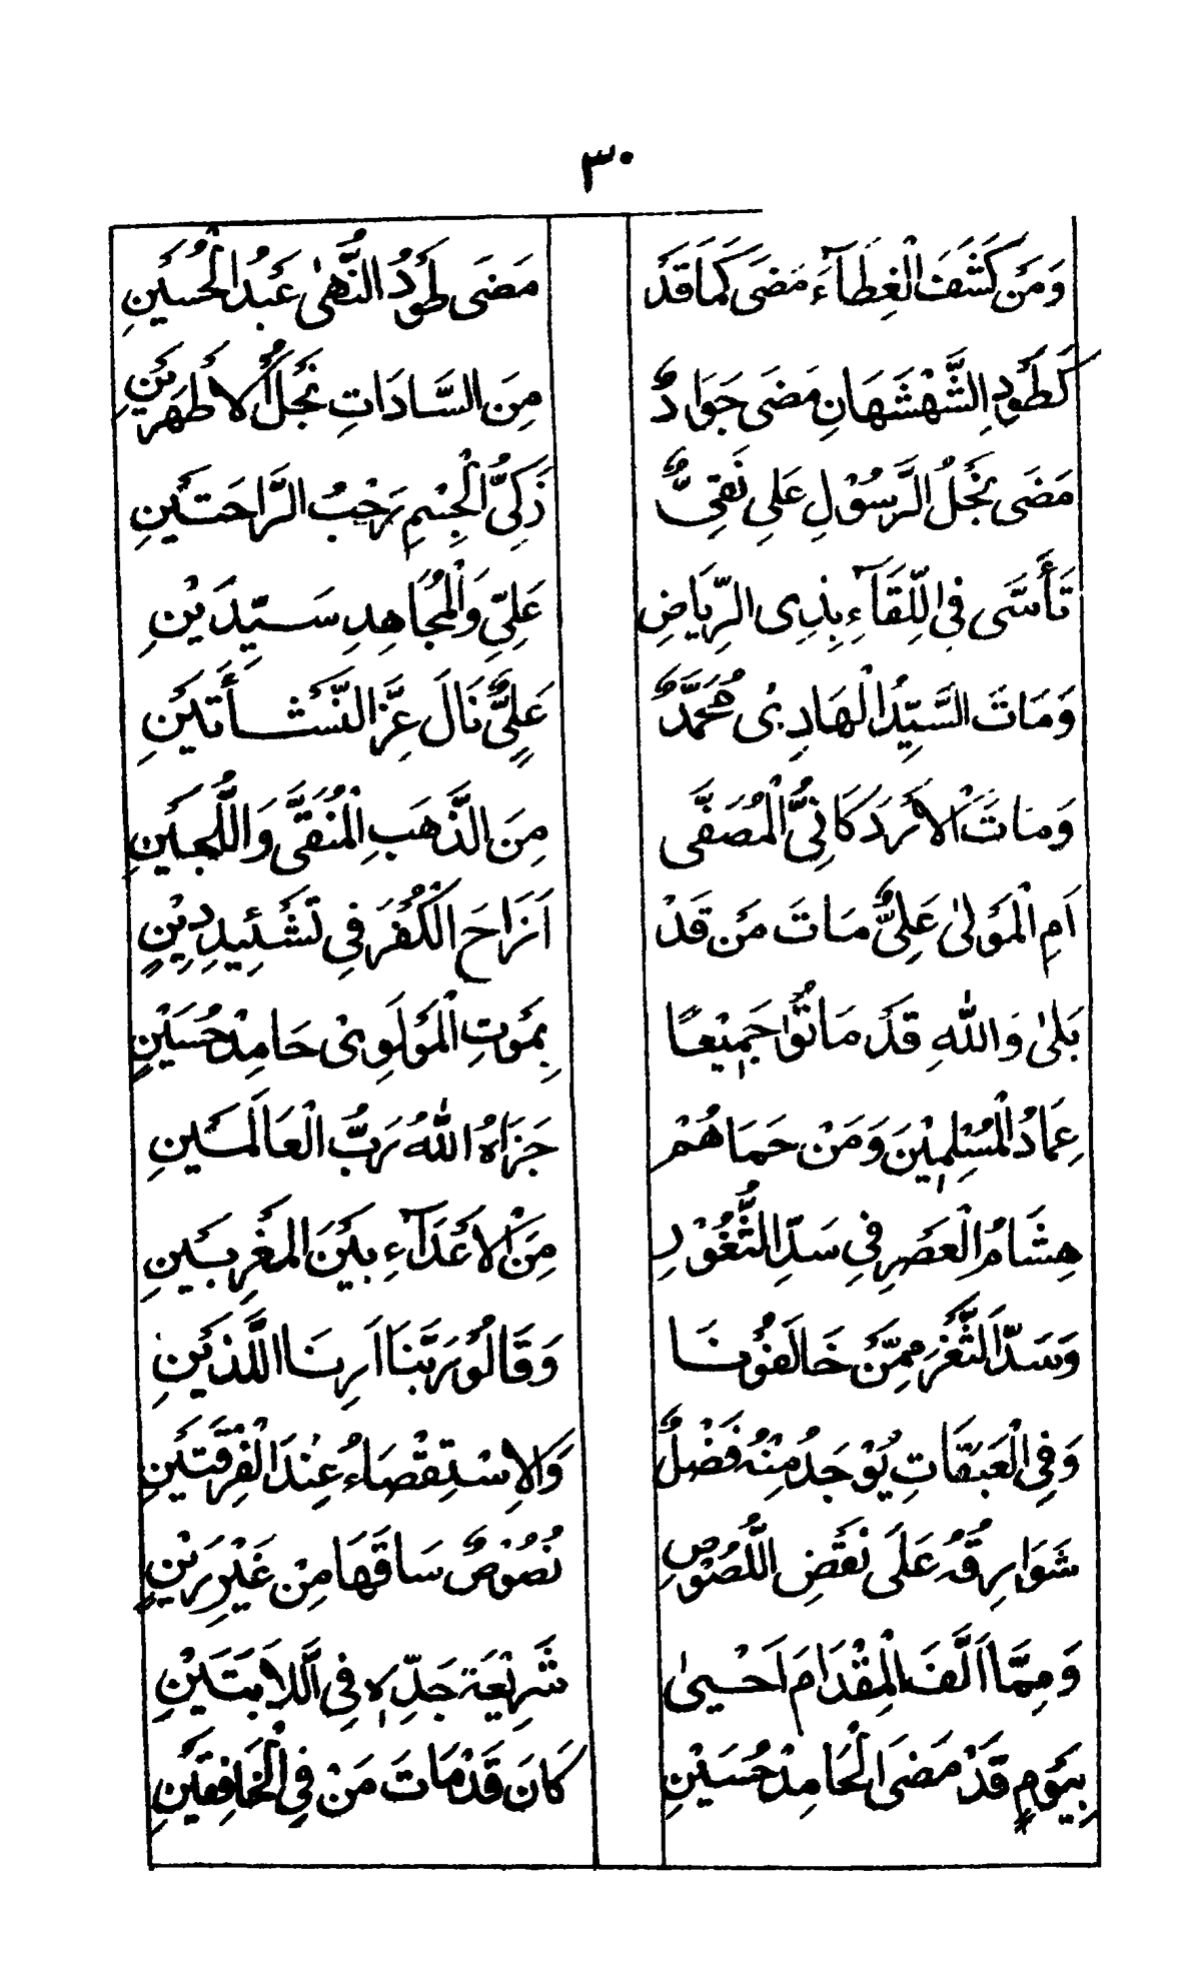 ٣٠
وَمَنْ كَشَفَ الْغِطَآءَ مَضَى كَمَا قَدْ مَضَى طَوْدُ النُّهىٰ عَبْدُ الْحُسَيْنِ
كَطَوْدِ الشَّهْشَهَانِ مَضَى جَوَادٌ مِنَ السَّادَاتِ نَجْلُ الْاَطْهَرَيْنِ
مَضَى نَجْلُ الرَّسُوْلِ عَلِي نَقِيٌّ زَكِيُّ الْجِسْمِ رَحْبُ الرَّاحَتَيْنِ
تَأَسَّى فِي اللِّقَآءِ بِذِى الرِّيَاضِ عَلِيِّ وَالْمُجَاهِدِ سَيِّدَيْنِ
وَمَاتَ السَّيِّدُ الْهَادِى مُحَمَّدٌ عَلِيٌّ نَالَ عِزَّ النَّشْأَتَيْنِ
وَمَاتَ الْاَرْدَكَانِيُّ الْمُصَفَّى مِنَ الذَّهَبِ الْمُنَقَّى وَاللُّجَيْنِ
اَمِ الْمَوْلىٰ عَلِيٌّ مَاتَ مَنْ قَدْ اَزَاحَ الْكُفْرَ فِي تَشْئِيدِ دِيْنٍ
بَلىٰ وَاللهِ قَدْ مَاتُوْا جَمِيْعًا بِمَوْتِ الْمَوْلَوِىْ حَامِدْ حُسَيْنٍ
عِمَادُ الْمُسْلِمِيْنَ وَمَنْ حَمَاهُمْ جَزَاهُ اللهُ رَبُّ الْعَالَمَيْنِ
هِشَامُ الْعَصْرِ فِي سَدِّ الثُّغُوْرِ مِنَ الْاَعْدَآءِ بَيْنَ الْمَغْرِبَيْنِ
وَسَدَّ الثَّغْرَ مِمَّنْ خَالَفُوْنَا وَقَالُوْ رَبَّنَا اَرِنَا اللَّذَيْنِ
وَفِي الْعَبَقَاتِ يُوْجَدُ مِنْهُ فَضْلٌ وَالْاِسْتِقْصَاءُ عِنْدَ الْفِرْقَتَيْنِ
شَوَارِقُهُ عَلَى نَقْضِ اللُّصُوْصِ نُصُوْصٌ سَاقَهَا مِنْ غَيْرِ رَيْنٍ
وَمِمَّا اَلَّفَ الْمِقْدَامَ اَحْيىٰ شَرِيْعَةَ جَدِّهٖ فِي اللَّابَتَيْنِ
بِيَوْمٍ قَدْ مَضَى الْحَامِدْ حُسَيْنِ كَانَ قَدْ مَاتَ مَنْ فِي الْخَافِقَيْنِ